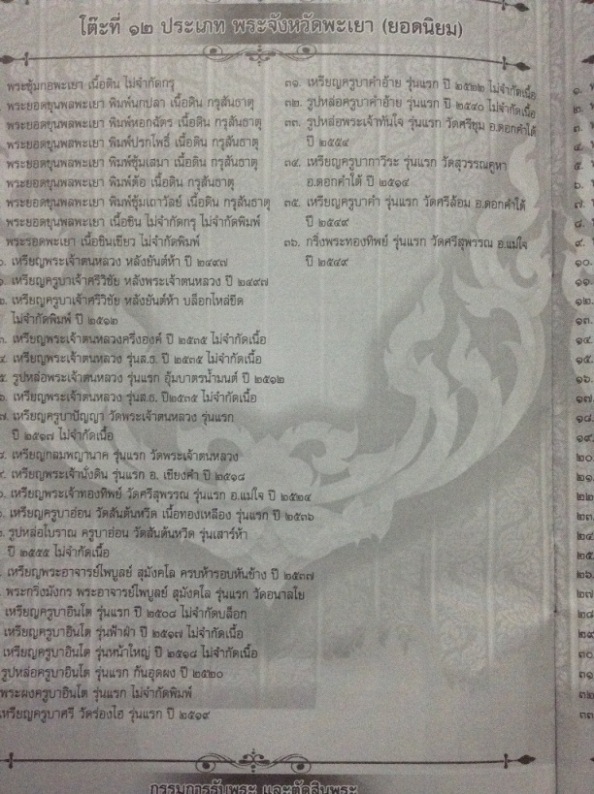 โต๊ะที่ ๑๒ ประเภท พระจังหวัดพะเยา (ยอดนิยม)
พระซุ้มกอพะเยา เนื้อดิน ไม่จำกัดกรุ
พระยอดขุนพลพะเยา พิมพ์นกปลา เนื้อดิน กรุสันธาตุ
พระยอดขุนพลพะเยา พิมพ์หอกฉัตร เนื้อดิน กรุสันธาตุ
พระยอดขุนพลพะเยา พิมพ์ปรกโพธิ์ เนื้อดิน กรุสันธาตุ
พระยอดขุนพลพะเยา พิมพ์ซุ้มเสมา เนื้อดิน กรุสันธาตุ
พระยอดขุนพลพะเยา พิมพ์ต้อ เนื้อดิน กรุสันธาตุ
พระยอดขุนพลพะเยา พิมพ์ซุ้มเถาวัลย์ เนื้อดิน กรุสันธาตุ
พระยอดขุนพลพะเยา เนื้อชิน ไม่จำกัดกรุ ไม่จำกัดพิมพ์
พระรอดพะเยา เนื้อชินเขียว ไม่จำกัดพิมพ์
๐. เหรียญพระเจ้าตนหลวง หลังยันต์ห้า ปี ๒๔๙๗
๑. เหรียญครูบาเจ้าศรีวิชัย หลังพระเจ้าตนหลวง ปี ๒๔๙๗
๒. เหรียญครูบาเจ้าศรีวิชัย หลังยันต์ห้า บล็อกไหล่ขีด
ไม่จำกัดพิมพ์ ปี ๒๕๑๒
๓. เหรียญพระเจ้าตนหลวงครึ่งองค์ ปี ๒๕๓๕ ไม่จำกัดเนื้อ
๔. เหรียญพระเจ้าตนหลวง รุ่นส.ธ. ปี ๒๕๓๕ ไม่จำกัดเนื้อ
๕. รูปหล่อพระเจ้าตนหลวง รุ่นแรก อุ้มบาตรน้ำมนต์ ปี ๒๕๑๒
๖. เหรียญพระเจ้าตนหลวง รุ่นส.ธ. ปี๒๕๓๕ ไม่จำกัดเนื้อ
๗. เหรียญครูบาปัญญา วัดพระเจ้าตนหลวง รุ่นแรก
ปี ๒๕๑๗ ไม่จำกัดเนื้อ
๘. เหรียญกลมพญานาค รุ่นแรก วัดพระเจ้าตนหลวง
๙. เหรียญพระเจ้านั่งดิน รุ่นแรก อ. เชียงคำ ปี ๒๕๑๘
๐. เหรียญพระเจ้าทองทิพย์ วัดศรีสุพรรณ รุ่นแรก อ.แม่ใจ ปี ๒๕๒๔
. เหรียญครูบาอ่อน วัดสันต้นหวีต เนื้อทองเหลือง รุ่นแรก ปี ๒๕๓๖
. รูปหล่อโบราณ ครูบาอ่อน วัดสันต้นหวีต รุ่นเสาร์ห้า
ปี ๒๕๕๕ ไม่จำกัดเนื้อ
. เหรียญพระอาจารย์ไพบูลย์ สุมังคโล ครบห้ารอบหันข้าง ปี ๒๕๓๗
. พระกริ่งมังกร พระอาจารย์ไพบูลย์ สุมังคโล รุ่นแรก วัดอนาลโย
เหรียญครูบาอินโต รุ่นแรก ปี ๒๕๐๘ ไม่จำกัดบล็อก
เหรียญครูบาอินโต รุ่นฟ้าผ่า ปี ๒๕๑๗ ไม่จำกัดเนื้อ
เหรียญครูบาอินโต รุ่นหน้าใหญ่ ปี ๒๕๑๘ ไม่จำกัดเนื้อ
รูปหล่อครูบาอินโต รุ่นแรก ก้นอุดผง ปี ๒๕๒๐
พระผงครูบาอินโต รุ่นแรก ไม่จำกัดพิมพ์
เหรียญครูบาศรี วัดร่องไฮ รุ่นแรก ปี ๒๕๑๙
๓๑. เหรียญครูบาคำอ้าย รุ่นแรก ปี ๒๕๒๒ ไม่จำกัดเนื้อ
๓๒. รูปหล่อครูบาคำอ้าย รุ่นแรก ปี ๒๕๔๐ ไม่จำกัดเนื้อ
๓๓. รูปหล่อพระเจ้าทันใจ รุ่นแรก วัดศรีชุม อ.ดอกคำใต้
ปี ๒๕๕๔
๓๔. เหรียญครูบากาวิระ รุ่นแรก วัดสุวรรณคูหา
อ.ดอกคำใต้ ปี ๒๕๑๙
๓๕. เหรียญครูบาคำ รุ่นแรก วัดศรีล้อม อ.ดอกคำใต้
ปี ๒๕๔๙
๓๖. กริ่งพระทองทิพย์ รุ่นแรก วัดศรีสุพรรณ อ.แม่ใจ
ปี ๒๕๔๙
กรรมการรับพระ และตัดสินพระ
๑.
๒.
๓.
๔.
๕.
๖.
๗.
๘.
๙.
๑๐.
๑๑.
๑๒.
๑๓.
๑๔.
๑๕.
๑๖.
๑๗.
๑๘.
๑๙.
๒๐.
๒๑.
๒๒.
๒๓.
๒๔.
๒๕.
๒๖.
๒๗.
๒๘.
๒๙.
๓๐.
๓๑.
๓๒.
๓๓.